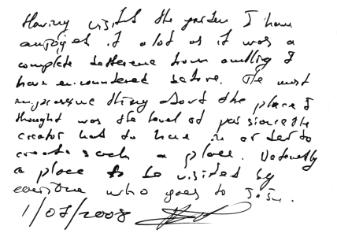 Having visited the garden I have
enjoyed it a lot as it was a
complete difference from anything I
have encountered before. The most
impressive thing about the place I
thought was the level of passion the
creator had to have in order to
create such a place. Definitely
a place to be visited by
everyone who goes to
1/08/2008